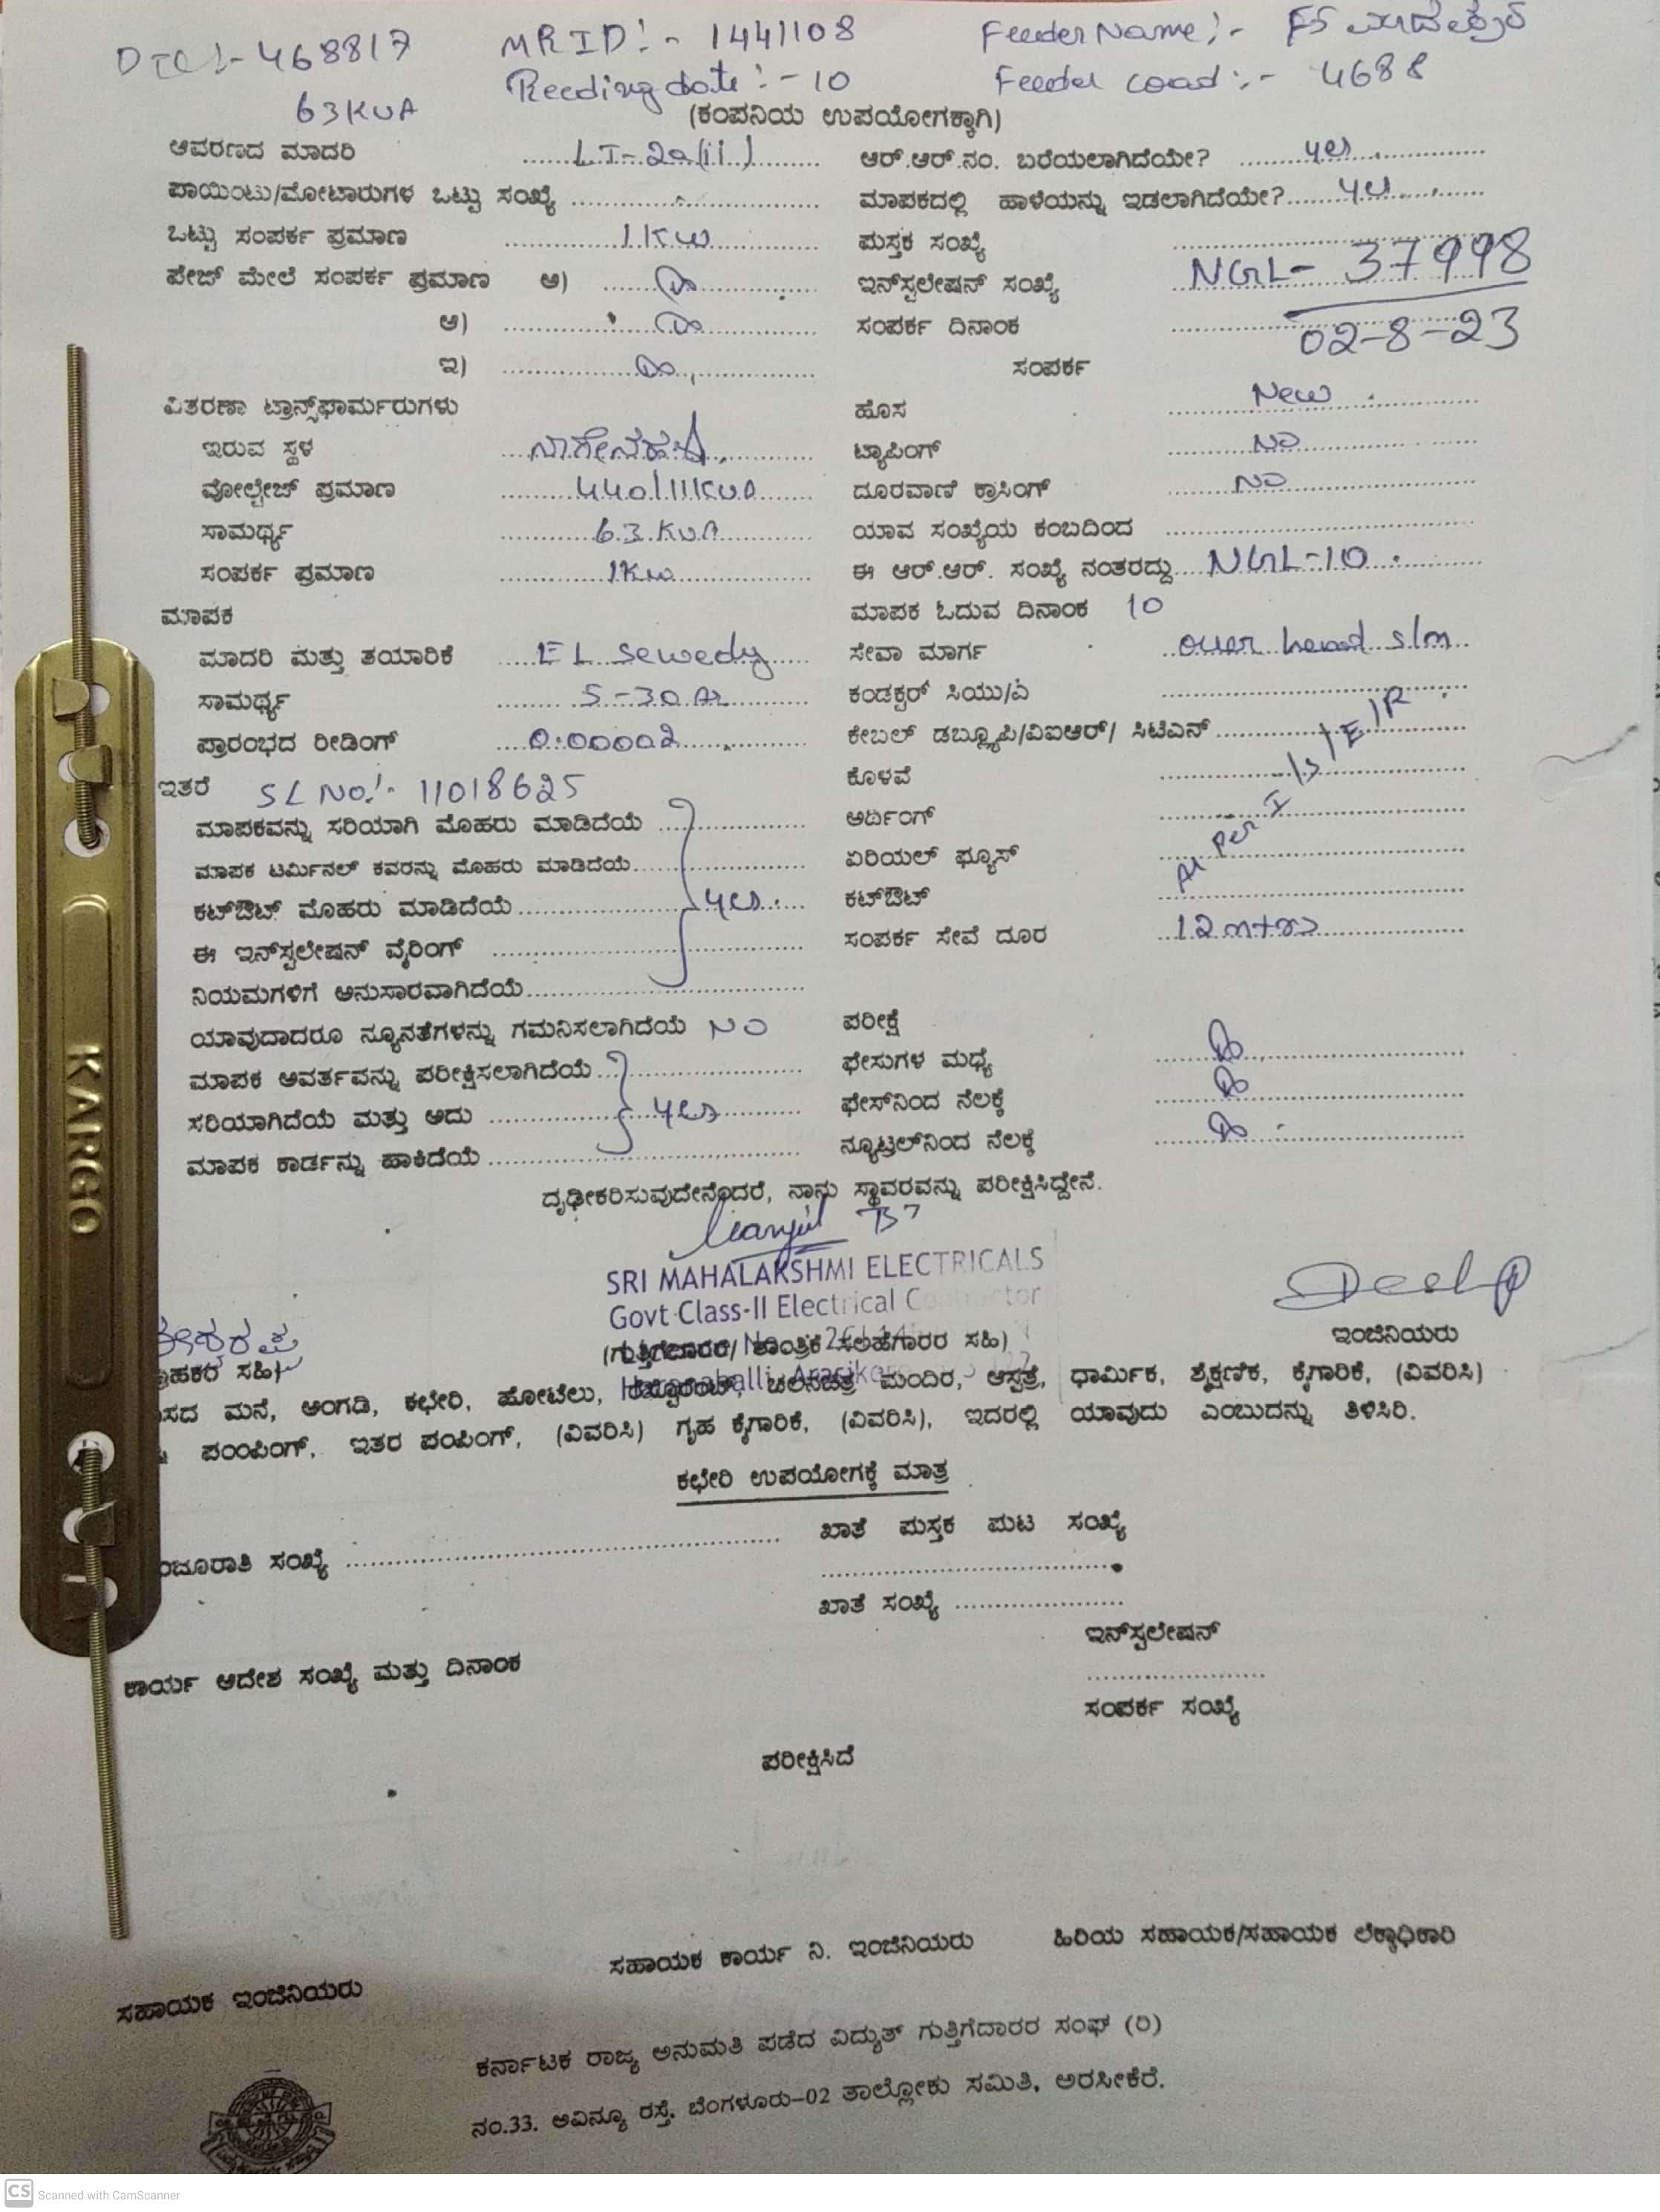 DTC:- 468817 MRID:- 1441108 Feeder Name:- F5
63KVA Reeding date:- 10 Feeder coad:- 4688
(ಕಂಪನಿಯ ಉಪಯೋಗಕ್ಕಾಗಿ)
ಆವರಣದ ಮಾದರಿ ......LT-2a(ii)......... ಆರ್.ಆರ್.ನಂ. ಬರೆಯಲಾಗಿದೆಯೇ? .........yes...............
ಪಾಯಿಂಟು/ಮೋಟಾರುಗಳ ಒಟ್ಟು ಸಂಖ್ಯೆ .................................. ಮಾಪಕದಲ್ಲಿ ಹಾಳೆಯನ್ನು ಇಡಲಾಗಿದೆಯೇ?.......yes............
ಒಟ್ಟು ಸಂಪರ್ಕ ಪ್ರಮಾಣ ................1KW............... ಪುಸ್ತಕ ಸಂಖ್ಯೆ ..........................................
ಪೇಜ್ ಮೇಲೆ ಸಂಪರ್ಕ ಪ್ರಮಾಣ ಅ) .............................. ಇನ್‌ಸ್ಟಲೇಷನ್ ಸಂಖ್ಯೆ NGL- 37998
ಆ) .......................................... ಸಂಪರ್ಕ ದಿನಾಂಕ 02-8-23
ಇ) .......................................... ಸಂಪರ್ಕ
ವಿತರಣಾ ಟ್ರಾನ್ಸ್‌ಫಾರ್ಮರುಗಳು ಹೊಸ New
ಇರುವ ಸ್ಥಳ ...ನಾಗೇನಹಳ್ಳಿ............ ಟ್ಯಾಪಿಂಗ್ NO
ವೋಲ್ಟೇಜ್ ಪ್ರಮಾಣ ..........440/11KVA....... ದೂರವಾಣಿ ಕ್ರಾಸಿಂಗ್ NO
ಸಾಮರ್ಥ್ಯ ............63 KVA............ ಯಾವ ಸಂಖ್ಯೆಯ ಕಂಬದಿಂದ ..........................................
ಸಂಪರ್ಕ ಪ್ರಮಾಣ ..............1Kw................ ಈ ಆರ್.ಆರ್. ಸಂಖ್ಯೆ ನಂತರದ್ದು....NGL-10.............
ಮಾಪಕ ಮಾಪಕ ಓದುವ ದಿನಾಂಕ 10
ಮಾದರಿ ಮತ್ತು ತಯಾರಿಕೆ .....EL sewedy..... ಸೇವಾ ಮಾರ್ಗ ..over head s/m..
ಸಾಮರ್ಥ್ಯ .........5-30 A........... ಕಂಡಕ್ಟರ್ ಸಿಯು/ಎ ..........................................
ಪ್ರಾರಂಭದ ರೀಡಿಂಗ್ ....0.00002............. ಕೇಬಲ್ ಡಬ್ಲ್ಯೂಪಿ/ವಿಐಆರ್/ ಸಿಟಿಎನ್ ..................................
ಇತರೆ SL NO:- 11018625 ಕೊಳವೆ ..........................................
ಮಾಪಕವನ್ನು ಸರಿಯಾಗಿ ಮೊಹರು ಮಾಡಿದೆಯೆ .................... ಅರ್ದಿಂಗ್ ..........................................
ಮಾಪಕ ಟರ್ಮಿನಲ್ ಕವರನ್ನು ಮೊಹರು ಮಾಡಿದೆಯೆ...................... ಏರಿಯಲ್ ಫ್ಯೂಸ್ ..........................................
ಕಟ್‌ಔಟ್ ಮೊಹರು ಮಾಡಿದೆಯೆ.......................yes..... ಕಟ್‌ಔಟ್ ..........................................
ಈ ಇನ್‌ಸ್ಟಲೇಷನ್ ವೈರಿಂಗ್ .......................................... ಸಂಪರ್ಕ ಸೇವೆ ದೂರ ..12 mtrs....................
ನಿಯಮಗಳಿಗೆ ಅನುಸಾರವಾಗಿದೆಯೆ.....................................
ಯಾವುದಾದರೂ ನ್ಯೂನತೆಗಳನ್ನು ಗಮನಿಸಲಾಗಿದೆಯೆ NO ಪರೀಕ್ಷೆ
ಮಾಪಕ ಆವರ್ತವನ್ನು ಪರೀಕ್ಷಿಸಲಾಗಿದೆಯೆ........................ ಫೇಸುಗಳ ಮಧ್ಯೆ ..........................................
ಸರಿಯಾಗಿದೆಯೆ ಮತ್ತು ಅದು ...................yes............ ಫೇಸ್‌ನಿಂದ ನೆಲಕ್ಕೆ ..........................................
ಮಾಪಕ ಕಾರ್ಡನ್ನು ಹಾಕಿದೆಯೆ.......................................... ನ್ಯೂಟ್ರಲ್‌ನಿಂದ ನೆಲಕ್ಕೆ ..........................................
ದೃಢೀಕರಿಸುವುದೇನೆಂದರೆ, ನಾನು ಸ್ಥಾವರವನ್ನು ಪರೀಕ್ಷಿಸಿದ್ದೇನೆ.
SRI MAHALAKSHMI ELECTRICALS
Govt Class-II Electrical Contractor
(ಗುತ್ತಿಗೆದಾರರ/ ತಾಂತ್ರಿಕ ಸಲಹೆಗಾರರ ಸಹಿ) ಇಂಜಿನಿಯರು
ಗ್ರಾಹಕರ ಸಹಿ)
ಮನೆ, ಅಂಗಡಿ, ಕಛೇರಿ, ಹೋಟೆಲು, ಚಲನಚಿತ್ರ ಮಂದಿರ, ಆಸ್ಪತ್ರೆ, ಧಾರ್ಮಿಕ, ಶೈಕ್ಷಣಿಕ, ಕೈಗಾರಿಕೆ, (ವಿವರಿಸಿ)
ಪಂಂಪಿಂಗ್, ಇತರ ಪಂಪಿಂಗ್, (ವಿವರಿಸಿ) ಗೃಹ ಕೈಗಾರಿಕೆ, (ವಿವರಿಸಿ), ಇದರಲ್ಲಿ ಯಾವುದು ಎಂಬುದನ್ನು ತಿಳಿಸಿರಿ.
ಕಛೇರಿ ಉಪಯೋಗಕ್ಕೆ ಮಾತ್ರ
ಸಂಖ್ಯೆ .......................................... ಖಾತೆ ಪುಸ್ತಕ ಪುಟ ಸಂಖ್ಯೆ
ಖಾತೆ ಸಂಖ್ಯೆ ........................
ಇನ್‌ಸ್ಟಲೇಷನ್
ಕಾರ್ಯ ಆದೇಶ ಸಂಖ್ಯೆ ಮತ್ತು ದಿನಾಂಕ ..........................
ಸಂಪರ್ಕ ಸಂಖ್ಯೆ
ಪರೀಕ್ಷಿಸಿದೆ
ಸಹಾಯಕ ಇಂಜಿನಿಯರು ಸಹಾಯಕ ಕಾರ್ಯ ನಿ. ಇಂಜಿನಿಯರು ಹಿರಿಯ ಸಹಾಯಕ/ಸಹಾಯಕ ಲೆಕ್ಕಾಧಿಕಾರಿ
ಕರ್ನಾಟಕ ರಾಜ್ಯ ಅನುಮತಿ ಪಡೆದ ವಿದ್ಯುತ್ ಗುತ್ತಿಗೆದಾರರ ಸಂಘ (ರಿ)
ನಂ.33, ಅವಿನ್ಯೂ ರಸ್ತೆ, ಬೆಂಗಳೂರು-02 ತಾಲ್ಲೋಕು ಸಮಿತಿ, ಅರಸೀಕೆರೆ.
KARGO
CS Scanned with CamScanner